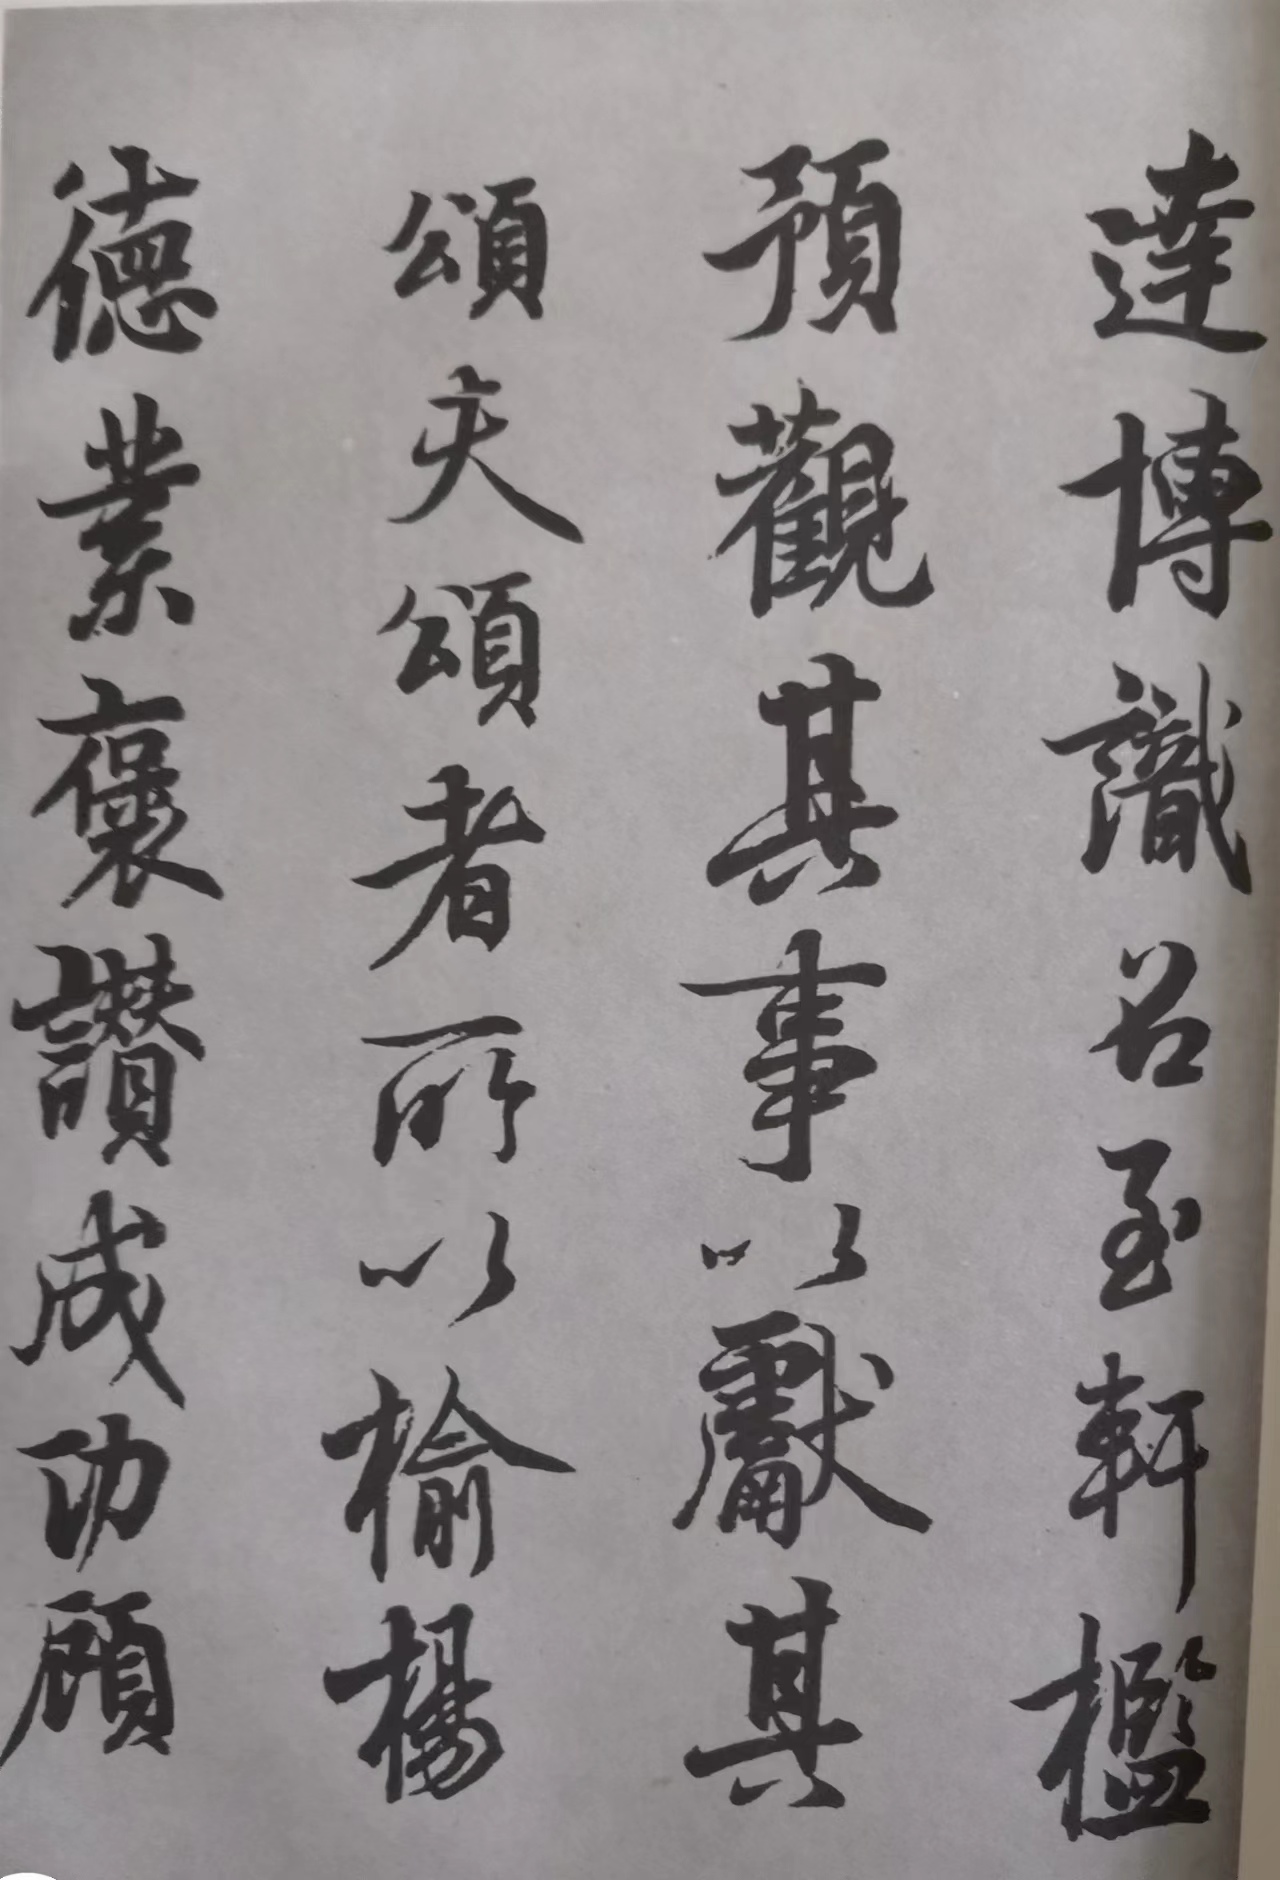 達博識召至軒檻
預觀其事以獻其
頌夫頌者所以榆楊
德業褒讚成功顧